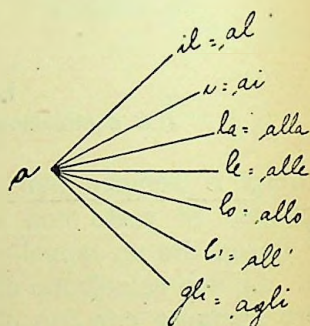 il = al
i = ai
la = alla
a
le = alle
lo = allo
l' = all'
gli = agli